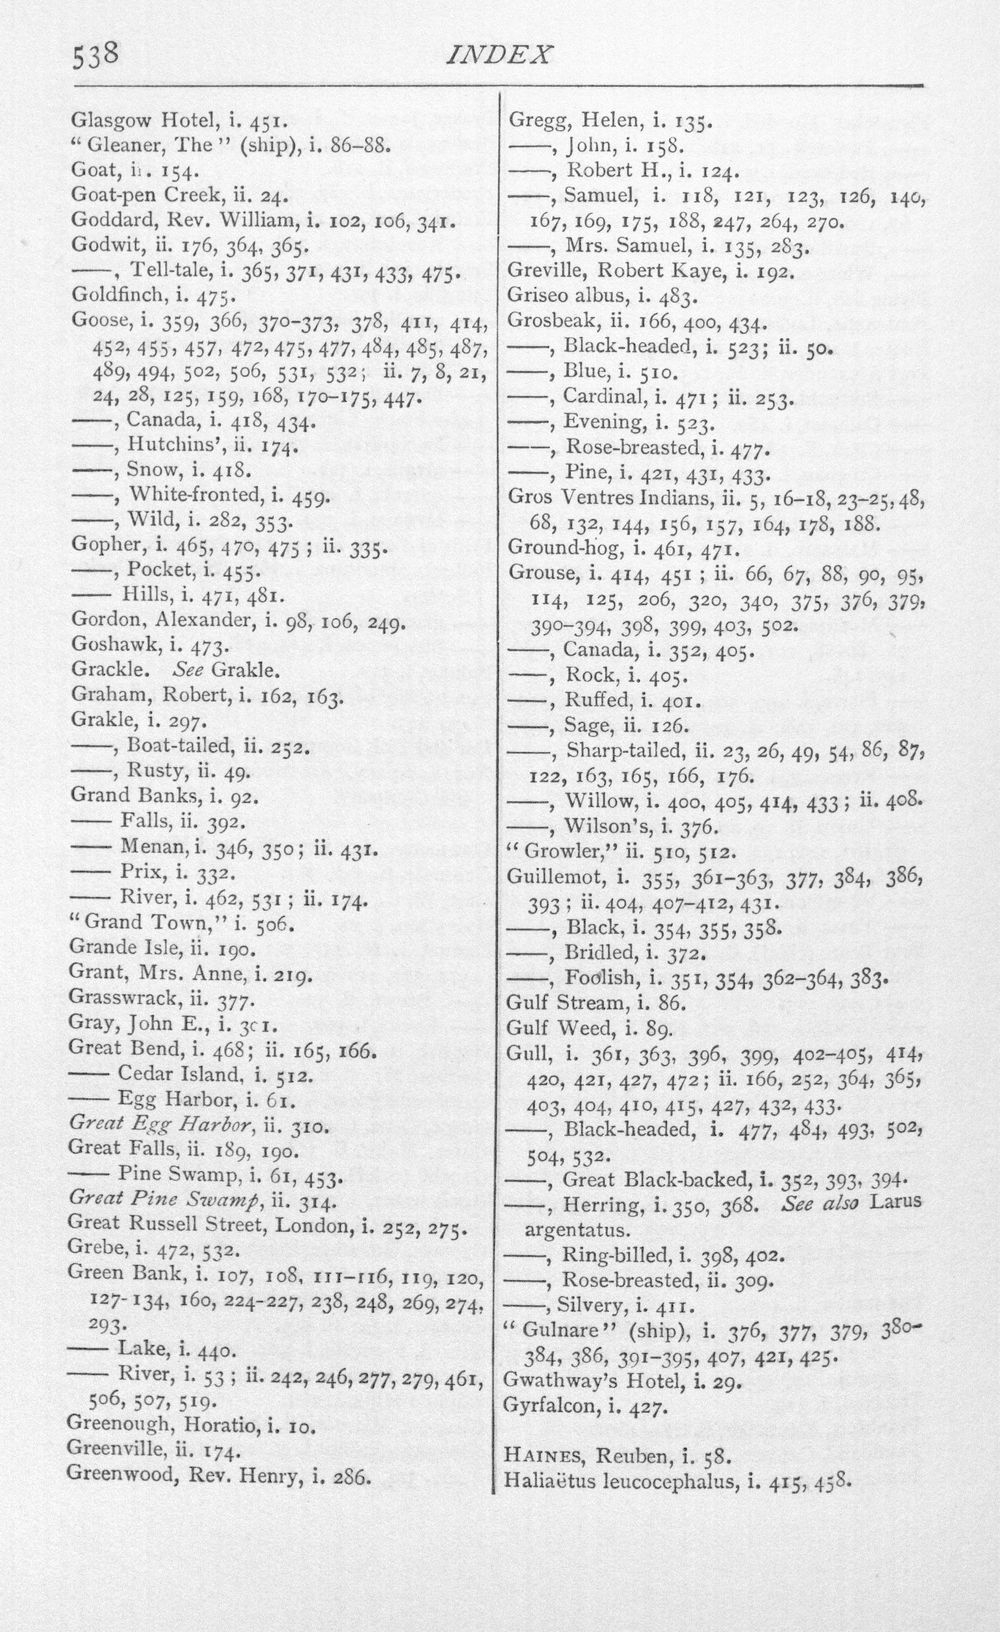 538 INDEX
Glasgow Hotel, i. 451.
“ Gleaner, The ” (ship), i. 86–88.
Goat, ii. 154.
Goat-pen Creek, ii. 24.
Goddard, Rev. William, i. 102, 106, 341.
Godwit, ii. 176, 364, 365.
——, Tell-tale, i. 365, 371, 431, 433, 475.
Goldfinch, i. 475.
Goose, i. 359, 366, 370–373, 378, 411, 414,
452, 455, 457, 472, 475, 477, 484, 485, 487,
489, 494, 502, 506, 531, 532; ii. 7, 8, 21,
24, 28, 125, 159, 168, 170–175, 447.
——, Canada, i. 418, 434.
——, Hutchins’, ii. 174.
——, Snow, i. 418.
——, White-fronted, i. 459.
——, Wild, i. 282, 353.
Gopher, i. 465, 470, 475 ; ii. 335.
——, Pocket, i. 455.
—— Hills, i. 471, 481.
Gordon, Alexander, i. 98, 106, 249.
Goshawk, i. 473.
Grackle. See Grakle.
Graham, Robert, i. 162, 163.
Grakle, i. 297.
——, Boat-tailed, ii. 252.
——, Rusty, ii. 49.
Grand Banks, i. 92.
—— Falls, ii. 392.
—— Menan, i. 346, 350; ii. 431.
—— Prix, i. 332.
—— River, i. 462, 531 ; ii. 174.
“Grand Town,” i. 506.
Grande Isle, ii. 190.
Grant, Mrs. Anne, i. 219.
Grasswrack, ii. 377.
Gray, John E., i. 301.
Great Bend, i. 468; ii. 165, 166.
—— Cedar Island, i. 512.
—— Egg Harbor, i. 61.
Great Egg Harbor, ii. 310.
Great Falls, ii. 189, 190.
—— Pine Swamp, i. 61, 453.
Great Pine Swamp, ii. 314.
Great Russell Street, London, i. 252, 275.
Grebe, i. 472, 532.
Green Bank, i. 107, 108, 111–116, 119, 120,
127-134, 160, 224-227, 238, 248, 269, 274,
293.
—— Lake, i. 440.
—— River, i. 53 ; ii. 242, 246, 277, 279, 461,
506, 507, 519.
Greenough, Horatio, i. 10.
Greenville, ii. 174.
Greenwood, Rev. Henry, i. 286.
Gregg, Helen, i. 135.
——, John, i. 158.
——, Robert H., i. 124.
——, Samuel, i. 118, 121, 123, 126, 140,
167, 169, 175, 188, 247, 264, 270.
——, Mrs. Samuel, i. 135, 283.
Greville, Robert Kaye, i. 192.
Griseo albus, i. 483.
Grosbeak, ii. 166, 400, 434.
——, Black-headed, i. 523; ii. 50.
——, Blue, i. 510.
——, Cardinal, i. 471 ; ii. 253.
——, Evening, i. 523.
——, Rose-breasted, i. 477.
——, Pine, i. 421, 431, 433.
Gros Ventres Indians, ii. 5, 16–18, 23–25, 48,
68, 132, 144, 156, 157, 164, 178, 188.
Ground-hog, i. 461, 471.
Grouse, i. 414, 451 ; ii. 66, 67, 88, 90, 95,
114, 125, 206, 320, 340, 375, 376, 379,
390–394, 398, 399, 403, 502.
——, Canada, i. 352, 405.
——, Rock, i. 405.
——, Ruffed, i. 401.
——, Sage, ii. 126.
——, Sharp-tailed, ii. 23, 26, 49, 54, 86, 87,
122, 163, 165, 166, 176.
——, Willow, i. 400, 405, 414, 433 ; ii. 408.
——, Wilson’s, i. 376.
“ Growler,” ii. 510, 512.
Guillemot, i. 355, 361–363, 377, 384, 386,
393 ; ii. 404, 407–412, 431.
——, Black, i. 354, 355, 358.
——, Bridled, i. 372.
——, Foolish, i. 351, 354, 362–364, 383.
Gulf Stream, i. 86.
Gulf Weed, i. 89.
Gull, i. 361, 363, 396, 399, 402–405, 414,
420, 421, 427, 472 ; ii. 166, 252, 364, 365,
403, 404, 410, 415, 427, 432, 433.
——, Black-headed, i. 477, 484, 493, 502,
504, 532.
——, Great Black-backed, i. 352, 393, 394.
——, Herring, i. 350, 368. See also Larus
argentatus.
——, Ring-billed, i. 398, 402.
——, Rose-breasted, ii. 309.
——, Silvery, i. 411.
“ Gulnare” (ship), i. 376, 377, 379, 380–
384, 386, 391–395, 407, 421, 425.
Gwathway’s Hotel, i. 29.
Gyrfalcon, i. 427.
HAINES, Reuben, i. 58.
Haliaëtus leucocephalus, i. 415, 458.